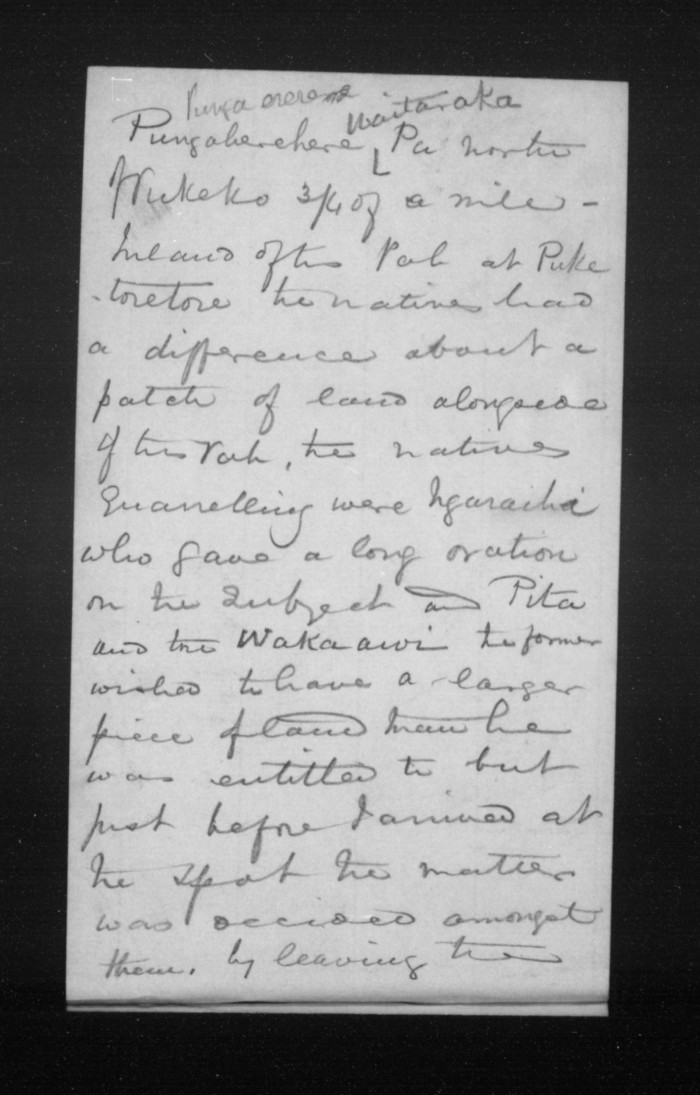 Punga erere
Waitaraka
Pungaherehere Pa north
Wukeko 3/4 of a mile -
Inland of the Pah at Puke
-toretore the natives had
a difference about a
patch of land alongside
of the Pah, the natives
Quarrelling were Ngaraihi
who gave a long oration
on the Subject and Pita
and the Waka awi the former
wished to have a larger
piece of land than he
was entitled to but
just before I arrived at
the Spot the matter
was decided amongst
them. by leaving the